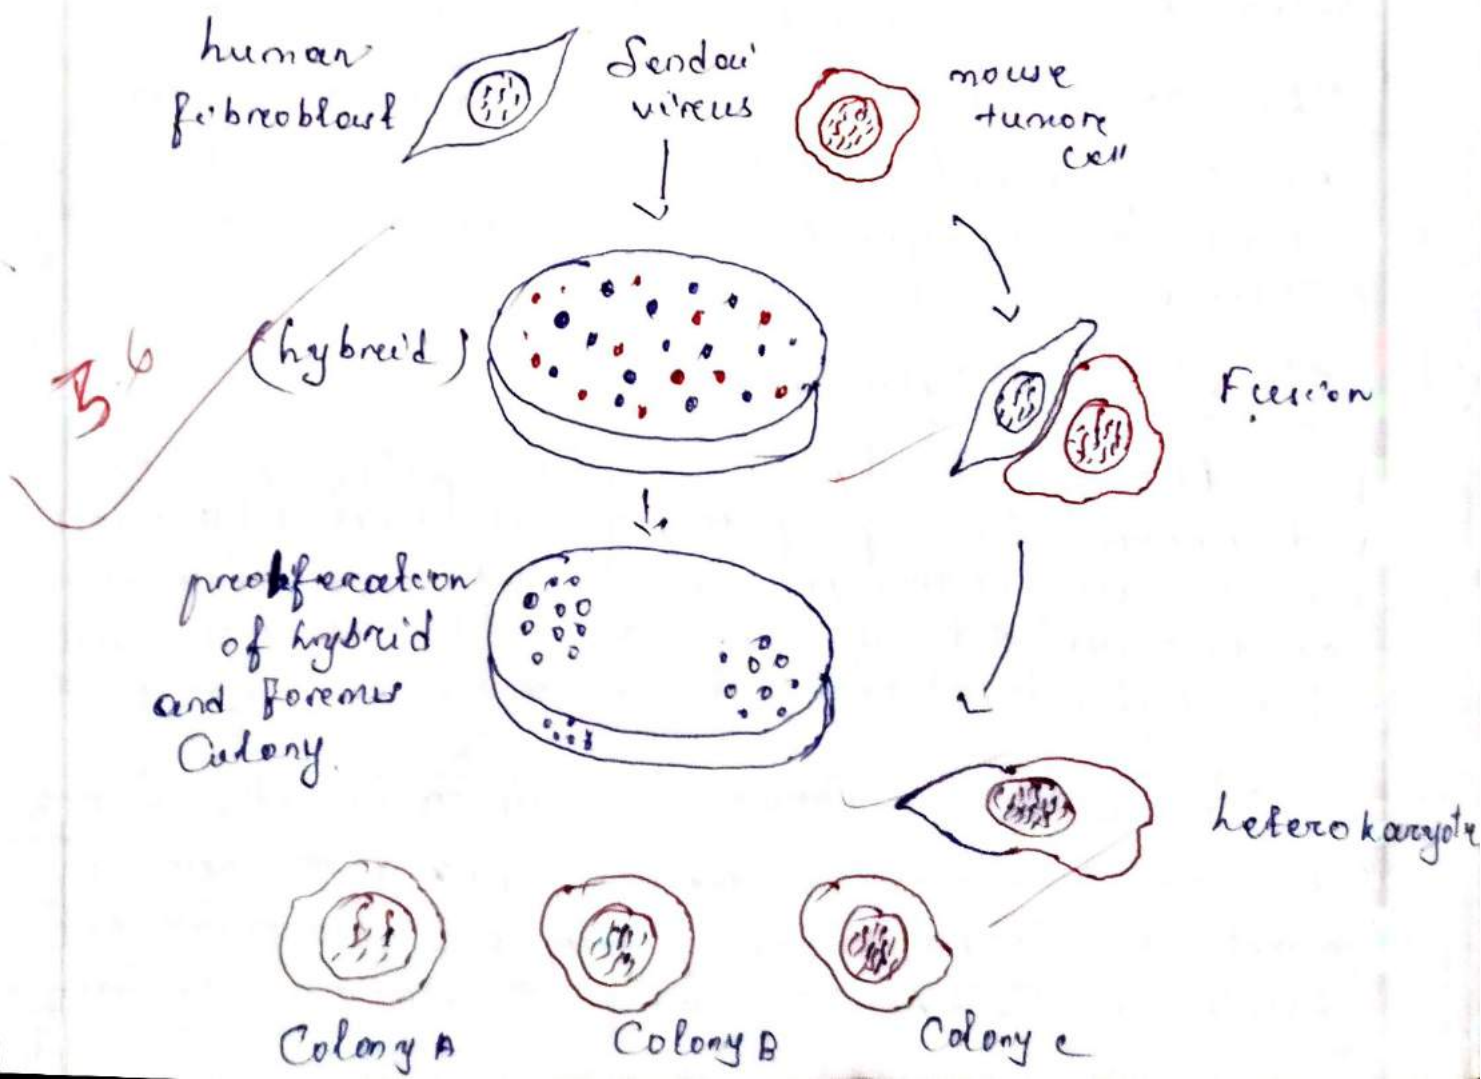 human
fibroblast
Sendai
virus
mouse
tumore
cell
(hybrid)
3.6
Fusion
proliferation
of hybrid
and Forems
Colony.
heterokaryote
Colony A
Colony B
Colony C